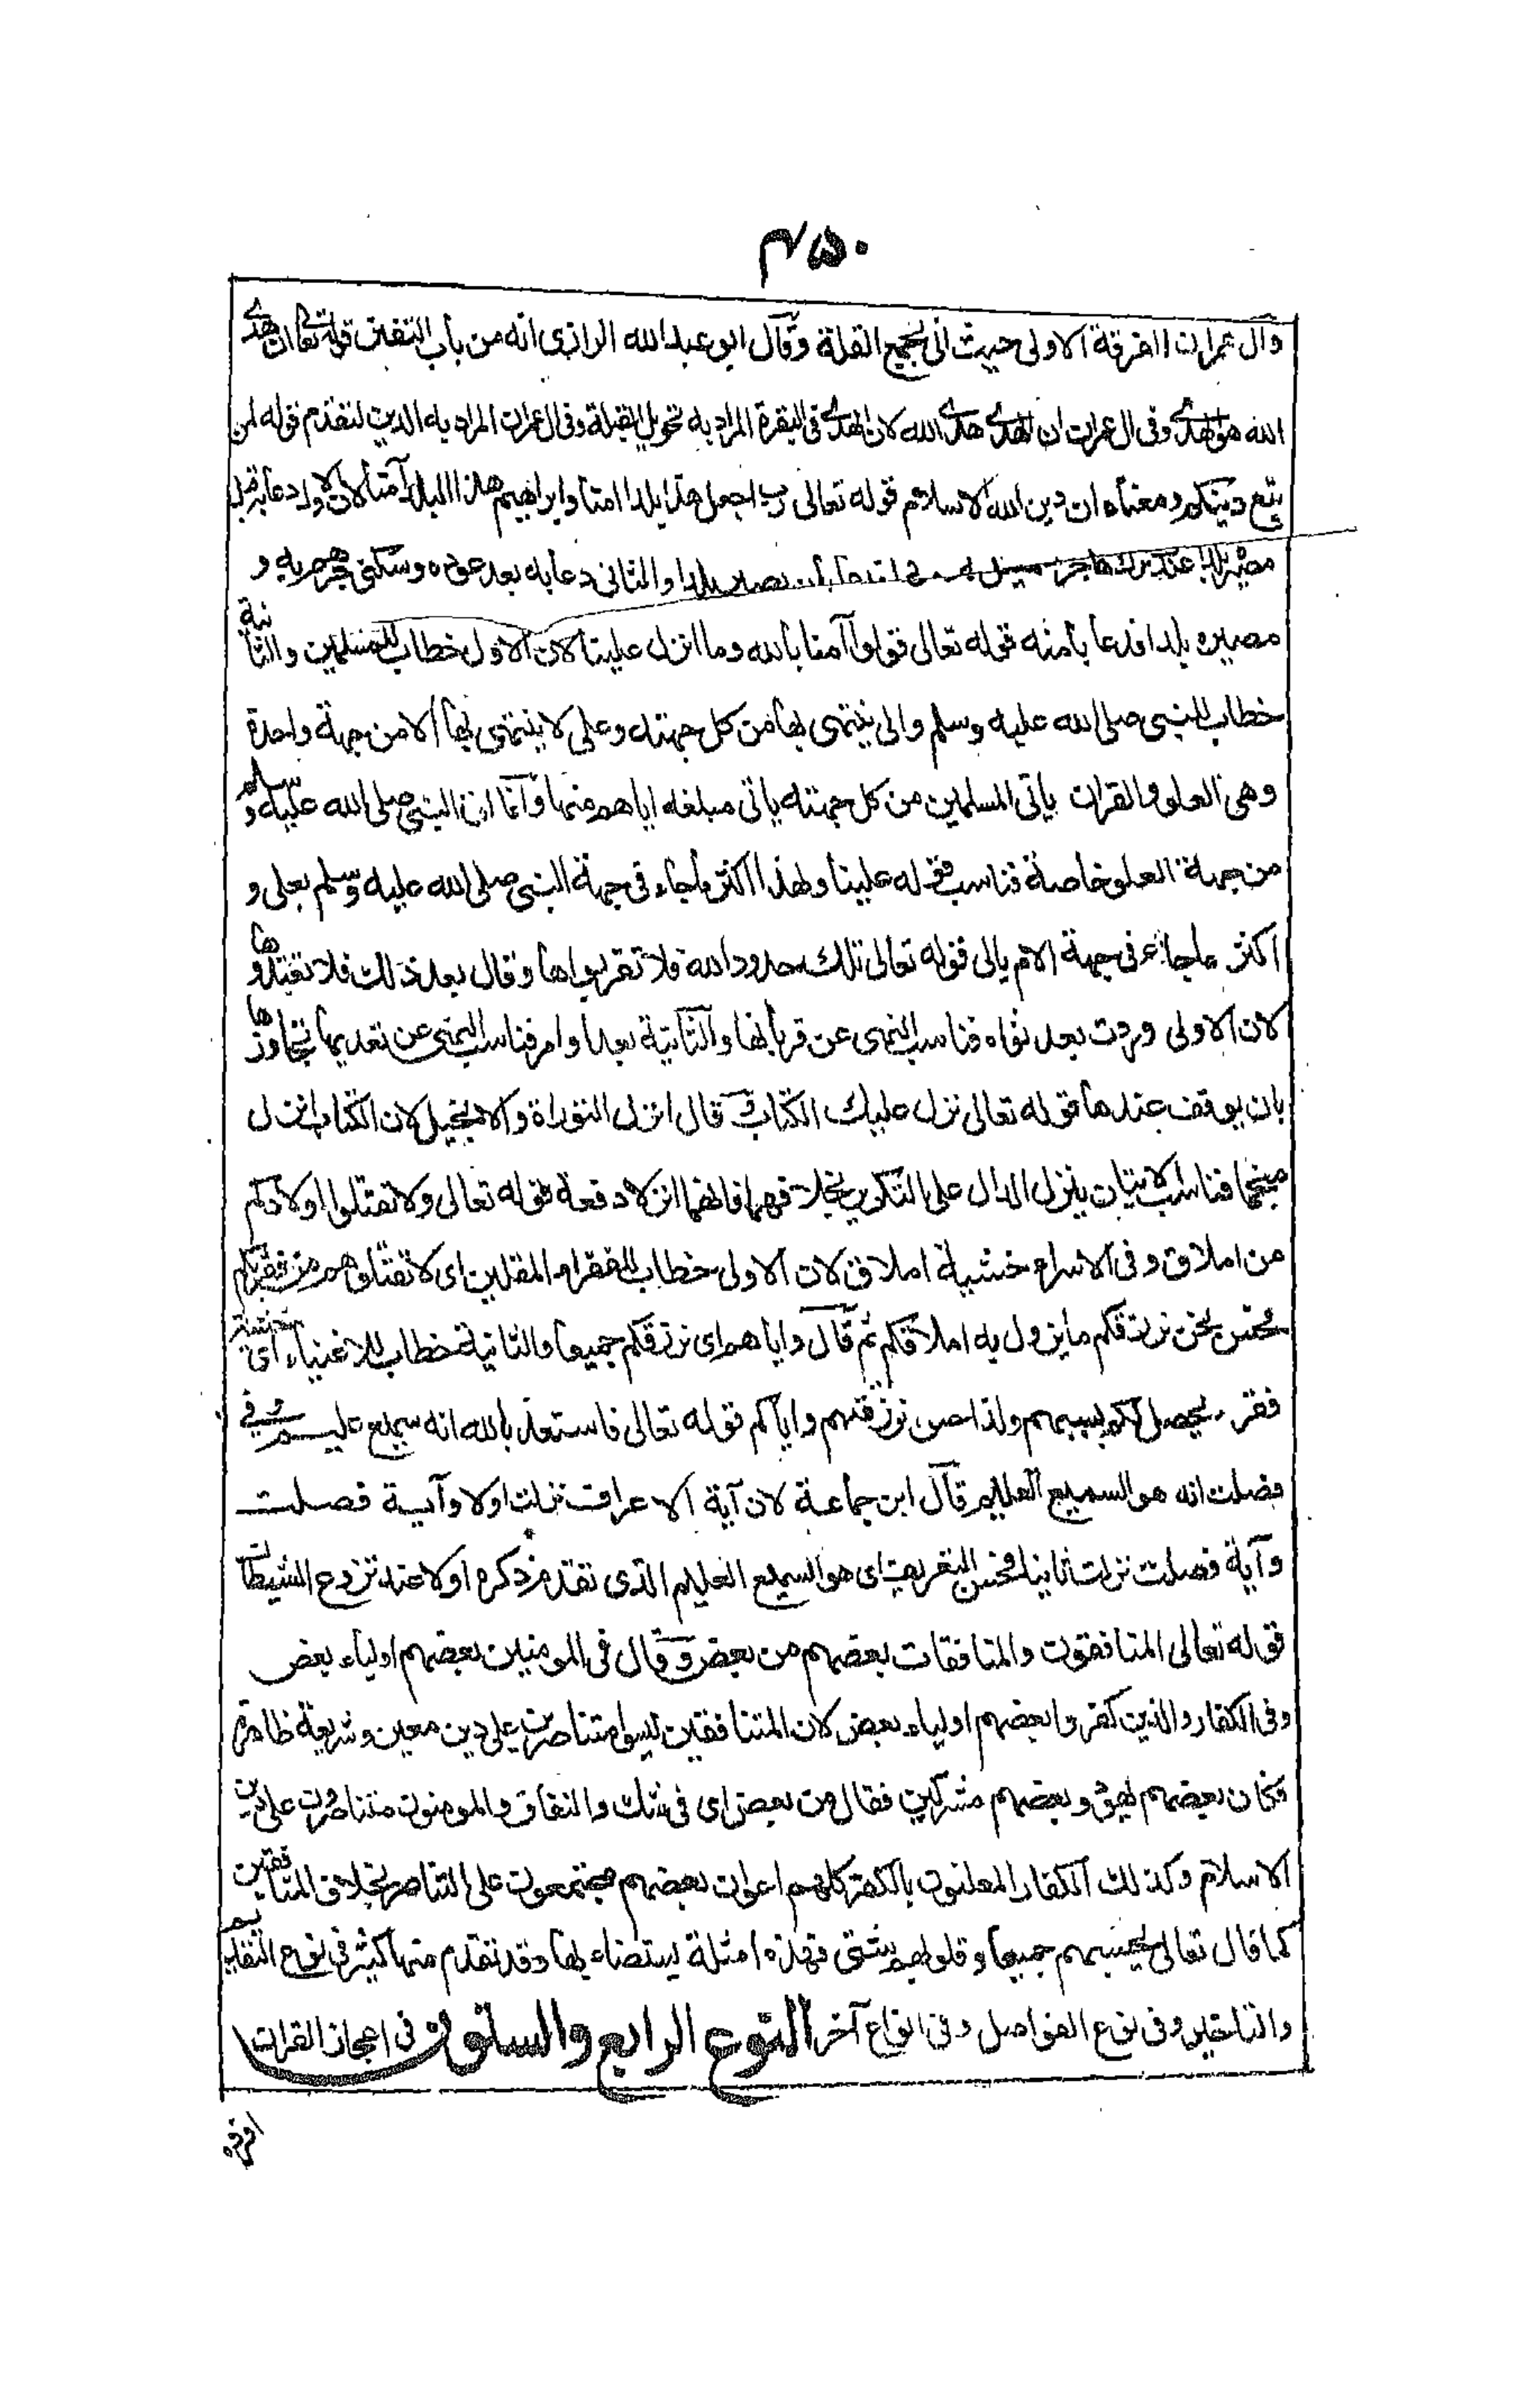 ۴۵۰
وآل عمران الفرقة الاولى حيث اتى بجمع القلة وقال ابو عبد الله الرازى انه من باب التفنن قوله تعالى ان هدى
الله هو الهدى وفى ال عمران ان الهدى هدى الله لان الهدى فى البقرة المراد به تحويل القبلة وفى ال عمران المراد به الدين لتقدم قوله لمن
تبع دينكم ومعناه ان دين الله الاسلام قوله تعالى رب اجعل هذا بلدا امنا وابراهيم هذا البلد آمنا لان الاول دعا به قبل
مصيره بلدا عند ترك هاجر بلدا والثانى دعا به بعد عوده وسكنى جرهم به و
مصيره بلدا فدعا بأمنه قوله تعالى قولوا آمنا بالله وما انزل علينا لان الاول خطاب للمسلمين والثانية
خطاب للنبى صلى الله عليه وسلم والى ينتهى بها من كل جهته وعلى لا ينتهى بها الا من جهة واحدة
وهى العلو والقران ياتى المسلمين من كل جهته ياتى مبلغه اياهم منها وانما اتى النبى صلى الله عليه وسلم
من جهة العلو خاصة فناسب قوله علينا ولهذا اكثر ماجاء فى جهة النبى صلى الله عليه وسلم بعلى و
اكثر ماجاء فى جهة الامم بالى قوله تعالى تلك حدود الله فلا تقربوها وقال بعد ذلك فلا تعتدوها
لان الاولى وردت بعد نواه فناسب النهى عن قربانها والثانية بعد اوامر فناسب النهى عن تعديها تجاوزها
بان يوقف عندها قوله تعالى نزل عليك الكتاب وقال انزل التوراة والانجيل لان الكتاب انزل
منجما فناسب الاتيان بنزل الدال على التكرير بخلافهما فانهما انزلا دفعة قوله تعالى ولا تقتلوا اولادكم
من املاق وفى الاسراء خشية املاق لان الاولى خطاب للفقراء المقلين اى لا تقتلوهم من فقر بكم
فحسن نحن نرزقكم مايزول به املاقكم ثم قال واياهم اى نرزقكم جميعا والثانية خطاب للاغنياء اى خشية
فقر يحصل لكم بسببهم ولذا حسن نرزقهم واياكم قوله تعالى فاستعذ بالله انه سميع عليم وفى
فصلت انه هو السميع العليم قال ابن جماعة لان آية الاعراف نزلت اولا وآية فصلت
وآية فصلت نزلت ثانيا فحسن التعريف اى هو السميع العليم الذى تقدم ذكره اولا عند نزوغ الشيطان
قوله تعالى المنافقون والمنافقات بعضهم من بعض وقال فى المومنين بعضهم اولياء بعض
وفى الكفار والذين كفروا بعضهم اولياء بعض لان المنافقين ليسوا متناصرين على دين معين وشريعة ظاهرة
فكان بعضهم يهود وبعضهم مشركين فقال من بعض اى فى شك والنفاق والمومنون متناصرون على دين
الاسلام وكذلك الكفار المعلنون بالكفر كلهم اعوان بعضهم مجتمعون على التناصر بخلاف المنافقين
كما قال تعالى تحسبهم جميعا وقلوبهم شتى فهذه امثلة يستضاء بها وقد تقدم منها كثير فى نوع التقديم
والتاخير وفى نوع الفواصل وفى انواع آخر النوع الرابع والستون فى اعجاز القران
افرده